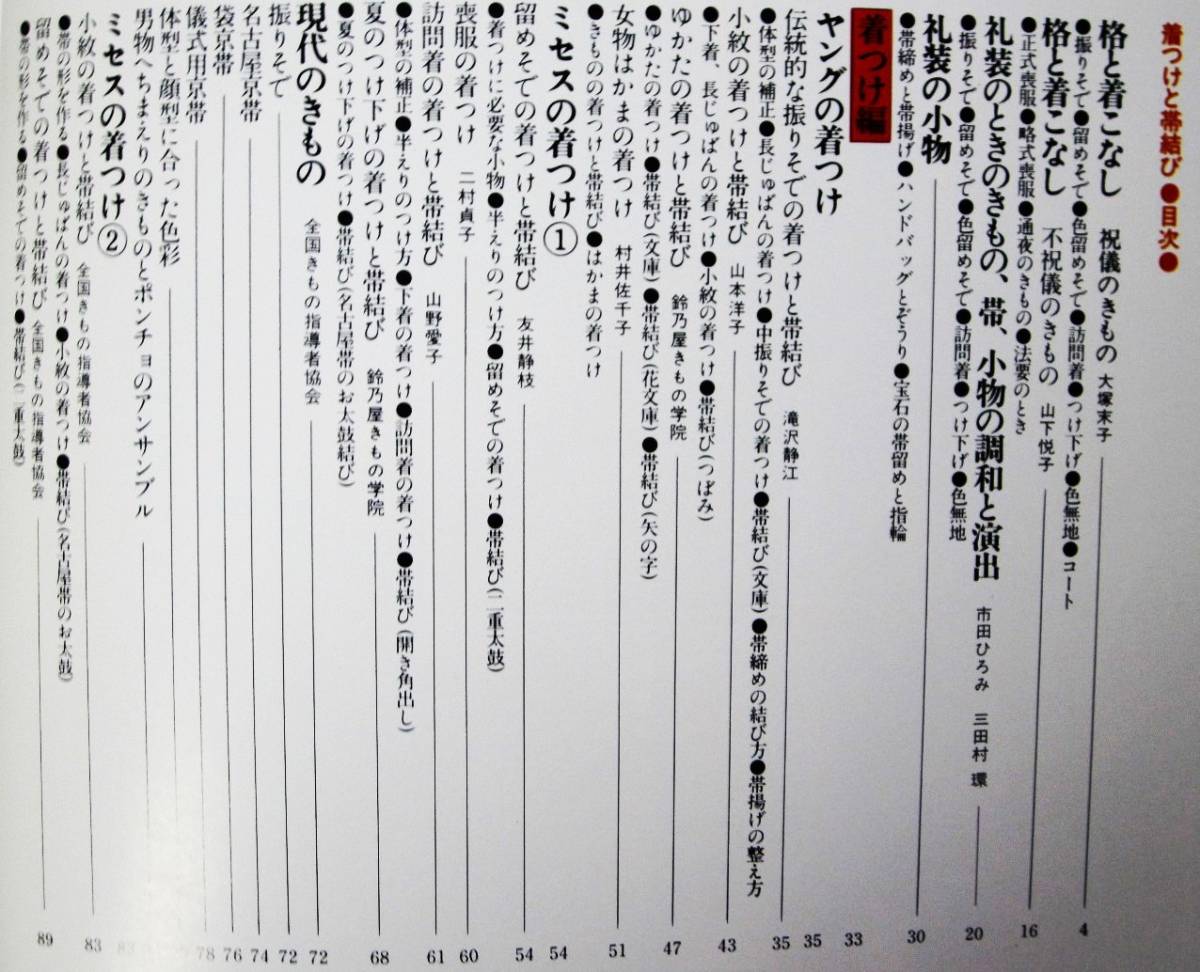 着つけと帯結び●目次●
格と着こなし 祝儀のきもの 大塚末子 4
●振りそで●留めそで●色留めそで●訪問着●つけ下げ●色無地●コート
格と着こなし 不祝儀のきもの 山下悦子 16
●正式喪服●略式喪服●通夜のきもの●法要のとき
礼装のときのきもの、帯、小物の調和と演出 市田ひろみ 三田村環 20
●振りそで●留めそで●色留めそで●訪問着●つけ下げ●色無地
礼装の小物 30
●帯締めと帯揚げ●ハンドバッグとぞうり●宝石の帯留めと指輪
着つけ編 33
ヤングの着つけ 35
伝統的な振りそでの着つけと帯結び 滝沢静江 35
●体型の補正●長じゅばんの着つけ●中振りそでの着つけ●帯結び(文庫)●帯締めの結び方●帯揚げの整え方
小紋の着つけと帯結び 山本洋子 43
●下着、長じゅばんの着つけ●小紋の着つけ●帯結び(つぼみ)
ゆかたの着つけと帯結び 鈴乃屋きもの学院 47
●ゆかたの着つけ●帯結び(文庫)●帯結び(花文庫)●帯結び(矢の字)
女物はかまの着つけ 村井佐千子 51
●きものの着つけと帯結び●はかまの着つけ
ミセスの着つけ① 54
留めそでの着つけと帯結び 友井静枝 54
●着つけに必要な小物●半えりのつけ方●留めそでの着つけ●帯結び(二重太鼓)
喪服の着つけ 二村貞子 60
訪問着の着つけと帯結び 山野愛子 61
●体型の補正●半えりのつけ方●下着の着つけ●訪問着の着つけ●帯結び(開き角出し)
夏のつけ下げの着つけと帯結び 鈴乃屋きもの学院 68
●夏のつけ下げの着つけ●帯結び(名古屋帯のお太鼓結び)
現代のきもの 全国きもの指導者協会 72
振りそで 72
名古屋京帯 74
袋京帯 76
儀式用京帯 78
体型と顔型に合った色彩
男物へちまえりのきものとポンチョのアンサンブル
ミセスの着つけ② 83
小紋の着つけと帯結び 全国きもの指導者協会 83
●帯の形を作る●長じゅばんの着つけ●小紋の着つけ●帯結び(名古屋帯のお太鼓)
留めそでの着つけと帯結び 全国きもの指導者協会 89
●帯の形を作る●留めそでの着つけ●帯結び(二重太鼓)